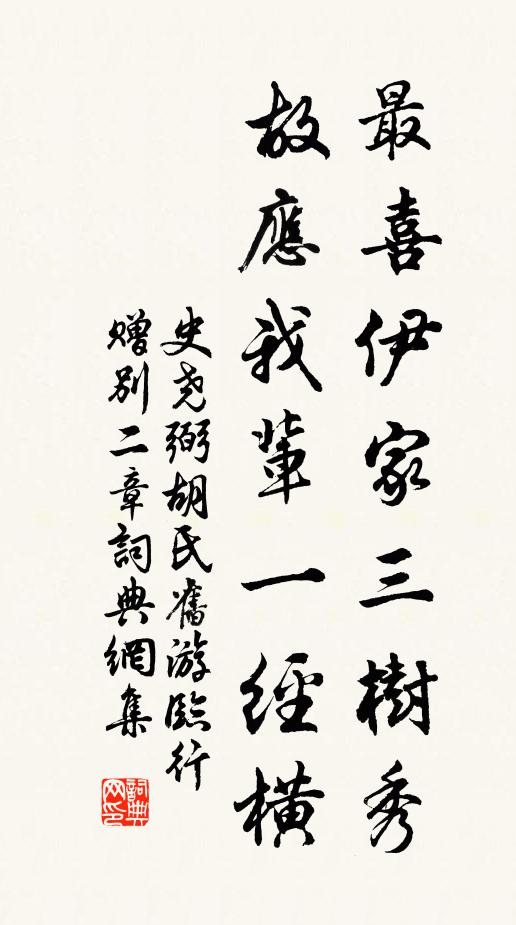 最喜伊家三樹秀
故應我輩一經橫
史堯弼胡氏舊游臨行
贈別二章詞典網集
詞典网印